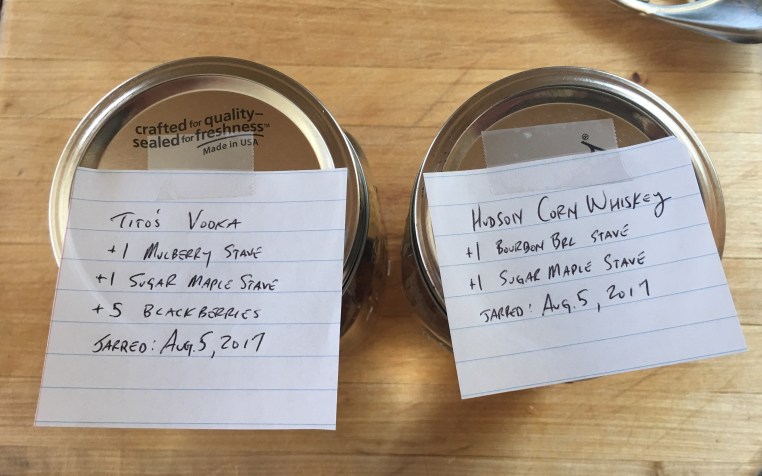 crafted for quality–
sealed for freshness™
Made in USA
TITO'S VODKA
+1 MULBERRY STAVE
+1 SUGAR MAPLE STAVE
+5 BLACKBERRIES
JARRED: AUG. 5, 2017
®
HUDSON CORN WHISKEY
+1 BOURBON BRL STAVE
+1 SUGAR MAPLE STAVE
JARRED: AUG. 5, 2017